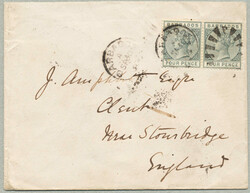 BARBADOS BARBADOS
FOUR PENCE FOUR PENCE
BARBAD
J. Amphlett Esqre
Clent
near Stourbridge
England